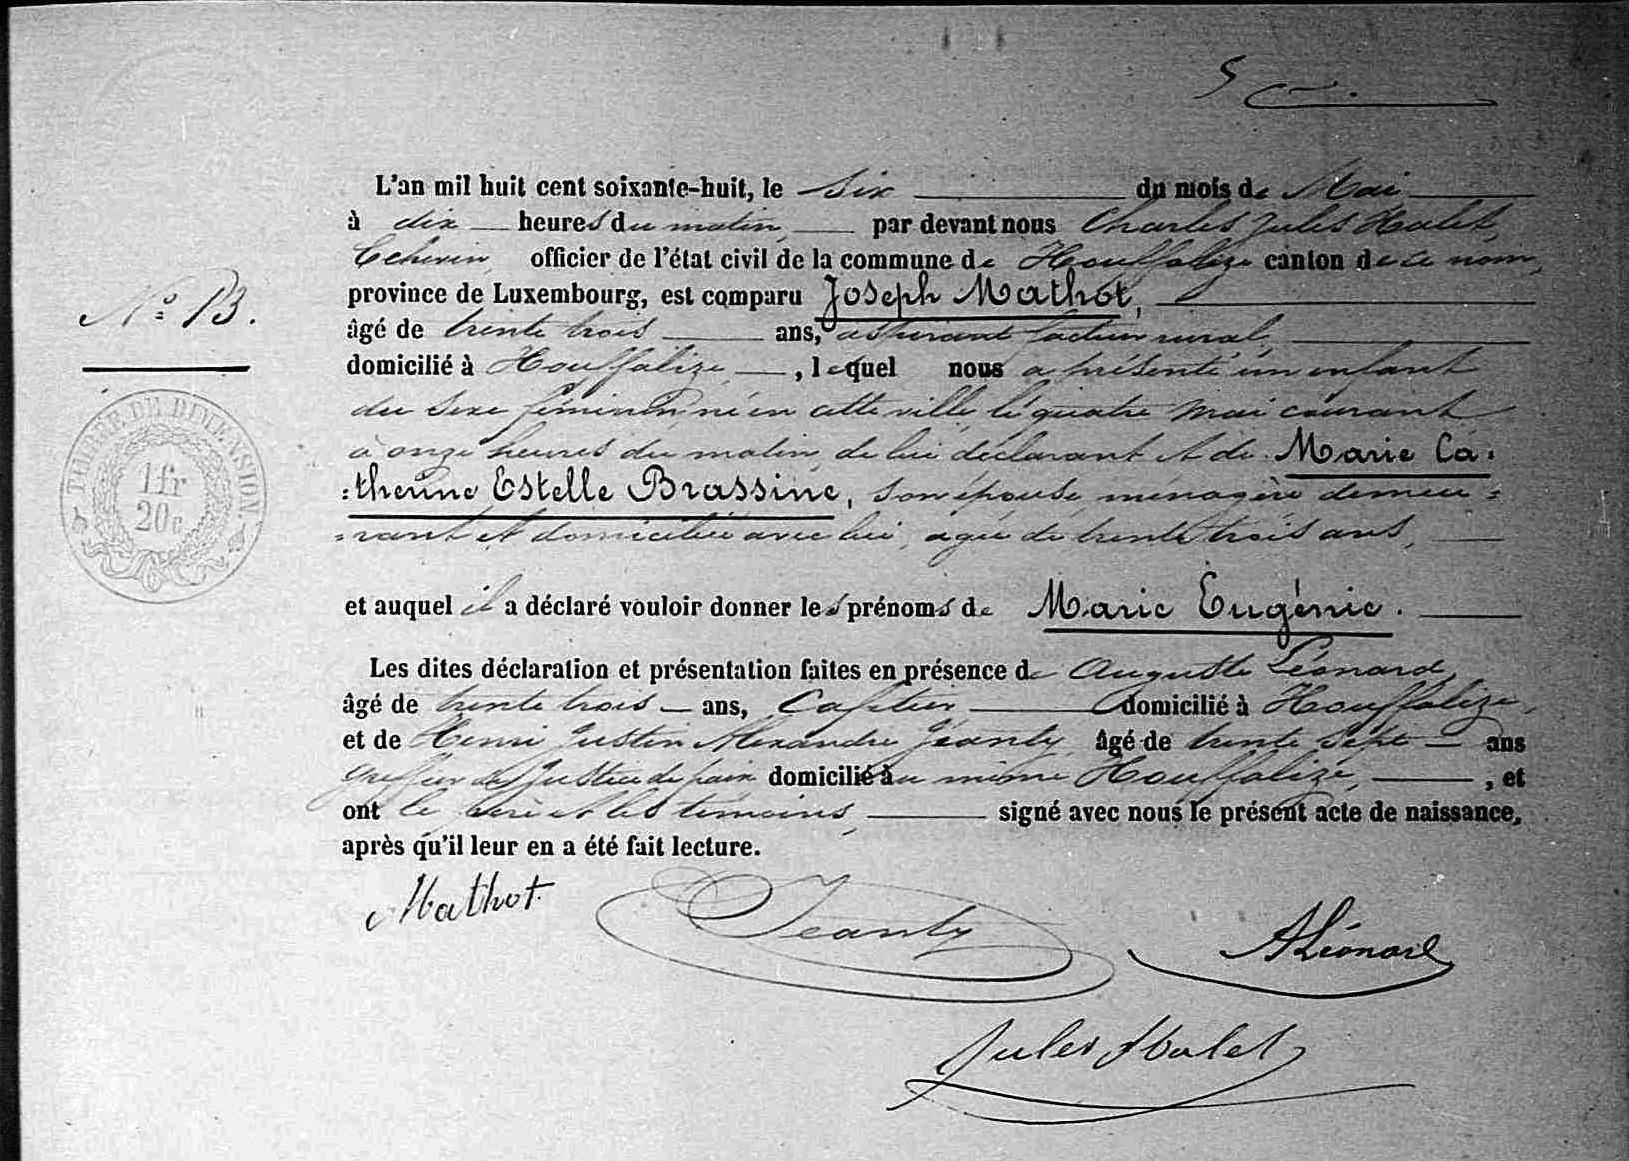 5
L'an mil huit cent soixante-huit, le six du mois de Mai
à dix heures du matin, par devant nous Charles Jules Halet,
Echevin, officier de l'état civil de la commune de Houffalize canton de ce nom,
province de Luxembourg, est comparu Joseph Mathot,
N° 13.
âgé de trente trois ans, facteur rural,
domicilié à Houffalize, lequel nous a présenté un enfant
du sexe féminin, né en cette ville, le quatre mai courant
à onze heures du matin, de lui déclarant et de Marie Ca:
:therine Estelle Brassine, son épouse, ménagère demeu=
=rant et domiciliée avec lui, agée de trente trois ans,
TIMBRE DE DIMENSION
1 fr
20 c
et auquel il a déclaré vouloir donner les prénoms de Marie Eugénie.
Les dites déclaration et présentation faites en présence de Auguste Léonard,
âgé de trente trois ans, domicilié à Houffalize,
et de Henri Justin Alexandre Jeanty, âgé de trente sept ans
greffier de Justice de paix domicilié au même Houffalize, et
ont le père et les témoins, signé avec nous le présent acte de naissance,
après qu'il leur en a été fait lecture.
Mathot
Jeanty
A Léonard
Jules Halet